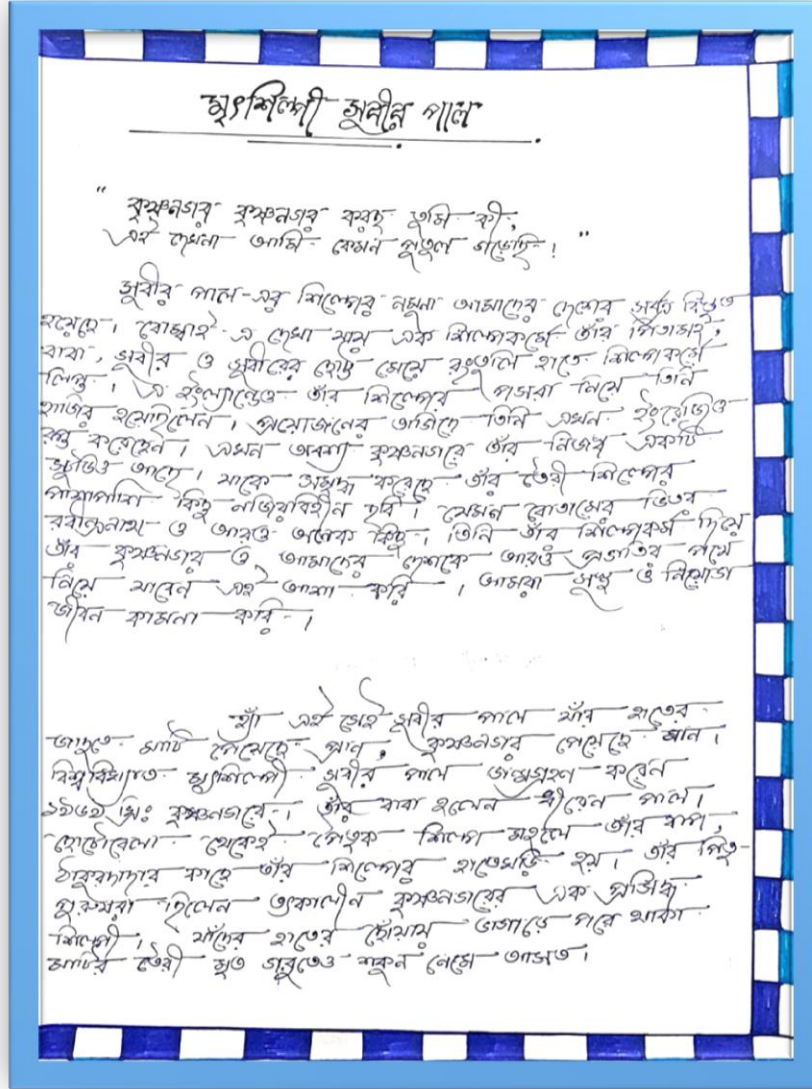 মৃৎশিল্পী সুবীর পাল
" কৃষ্ণনগর কৃষ্ণনগর করছ তুমি কী,
এই দেখনা আমি কেমন পুতুল গড়েছি! "
সুবীর পাল-এর শিল্পের নমুনা আমাদের দেশের সর্বত্র বিস্তৃত
হয়েছে। বোম্বাই-এ দেখা যায় এক শিল্পকর্মে তাঁর পিতামহ,
বাবা, সুবীর ও সুবীরের ছোট্ট মেয়ে রংতুলি হাতে শিল্পকর্মে
লিপ্ত। এ ইংল্যান্ডেও তাঁর শিল্পের পসরা নিয়ে তিনি
হাজির হয়েছিলেন। প্রয়োজনের তাগিদে তিনি এখন ইংরেজিও
রপ্ত করেছেন। এখন অবশ্য কৃষ্ণনগরে তাঁর নিজস্ব একটি
স্টুডিও আছে। যাকে সমৃদ্ধ করেছে তাঁর তৈরী শিল্পের
পাশাপাশি কিছু নজিরবিহীন ছবি। যেমন বোতামের ভিতর
রবীন্দ্রনাথ ও আরও অনেক কিছু। তিনি তাঁর শিল্পকর্ম দিয়ে
তাঁর কৃষ্ণনগর ও আমাদের দেশকে আরও প্রগতির পথে
নিয়ে যাবেন এই আশা করি। আমরা সুস্থ ও নিরোগ
জীবন কামনা করি।
হ্যাঁ এই সেই সুবীর পাল যাঁর হাতের
জাদুতে মাটি পেয়েছে প্রান, কৃষ্ণনগর পেয়েছে মান।
বিশ্ববিখ্যাত মৃৎশিল্পী সুবীর পাল জন্মগ্রহণ করেন
খ্রিঃ কৃষ্ণনগরে। তাঁর বাবা হলেন বীরেন পাল।
ছোটোবেলা থেকেই পৈতৃক শিল্প মহলে তাঁর বাপ,
ঠাকুরদাদার কাছে তাঁর শিল্পের হাতেখড়ি হয়। তাঁর পিতৃ-
পুরুষরা ছিলেন তৎকালীন কৃষ্ণনগরের এক প্রসিদ্ধ
শিল্পী। যাঁদের হাতের ছোঁয়ায় ভাগাড়ে পরে থাকা
মাটির তৈরী মৃত গরুতেও শকুন নেমে আসত।